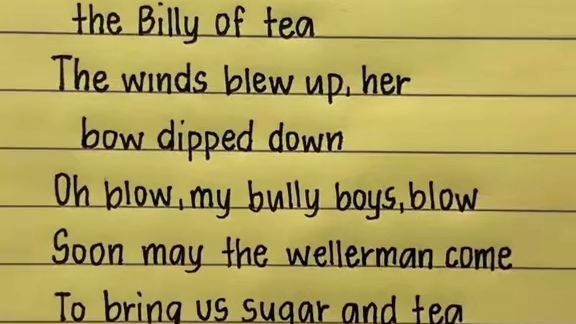 the Billy of tea
The winds blew up, her
bow dipped down
Oh blow, my bully boys, blow
Soon may the wellerman come
To bring us sugar and tea